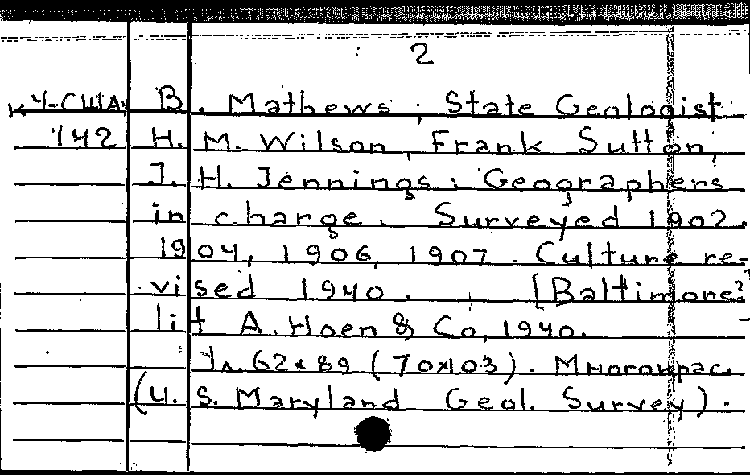 2
к4-США B. Mathews, State Geologist
142 H. M. Wilson, Frank Sutton,
J. H. Jennings: Geographers
in charge. Surveyed 1902.
1904, 1906, 1907. Culture re-
vised 1940. [Baltimore?]
lit A. Hoen & Co, 1940.
1л. 62×89 (70×103). Многокрас.
(U. S. Maryland Geol. Survey).